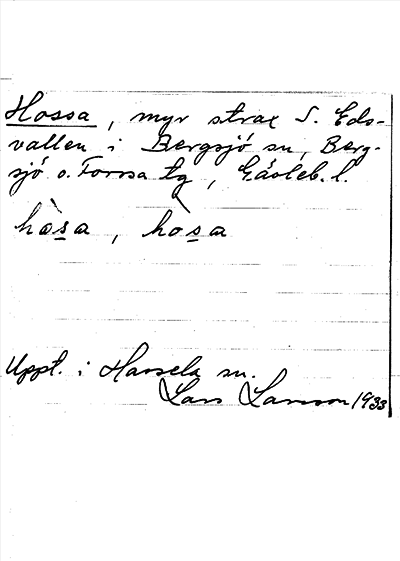 Hossa, myr strax S. Eds-
vallen i Bergsjö sn, Berg-
sjö o. Forsa tg, Gävleb. l.
hòs̲a, hòs̲a
Uppt. i Hassela sn.
Lars Larsson 1933